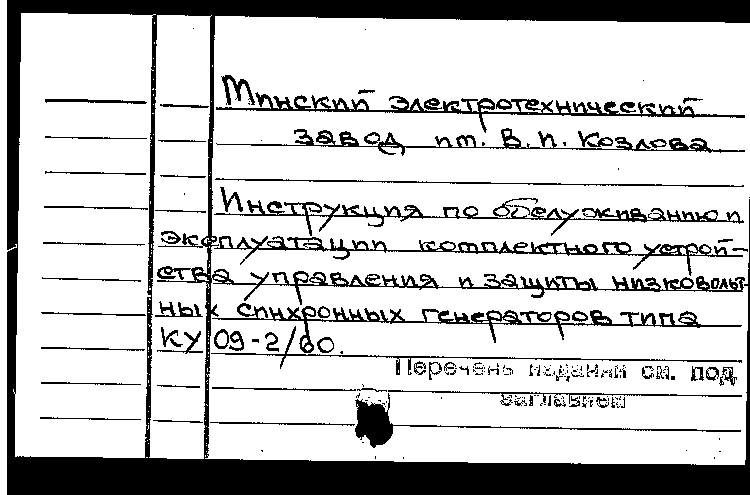 Минский электротехнический
завод им. В. И. Козлова
Инструкция по обслуживанию и
эксплуатации комплектного устрой-
ства управления и защиты низковольт-
ных синхронных генераторов типа
КУ 09-2/60.
Перечень издании см. под
заглавием